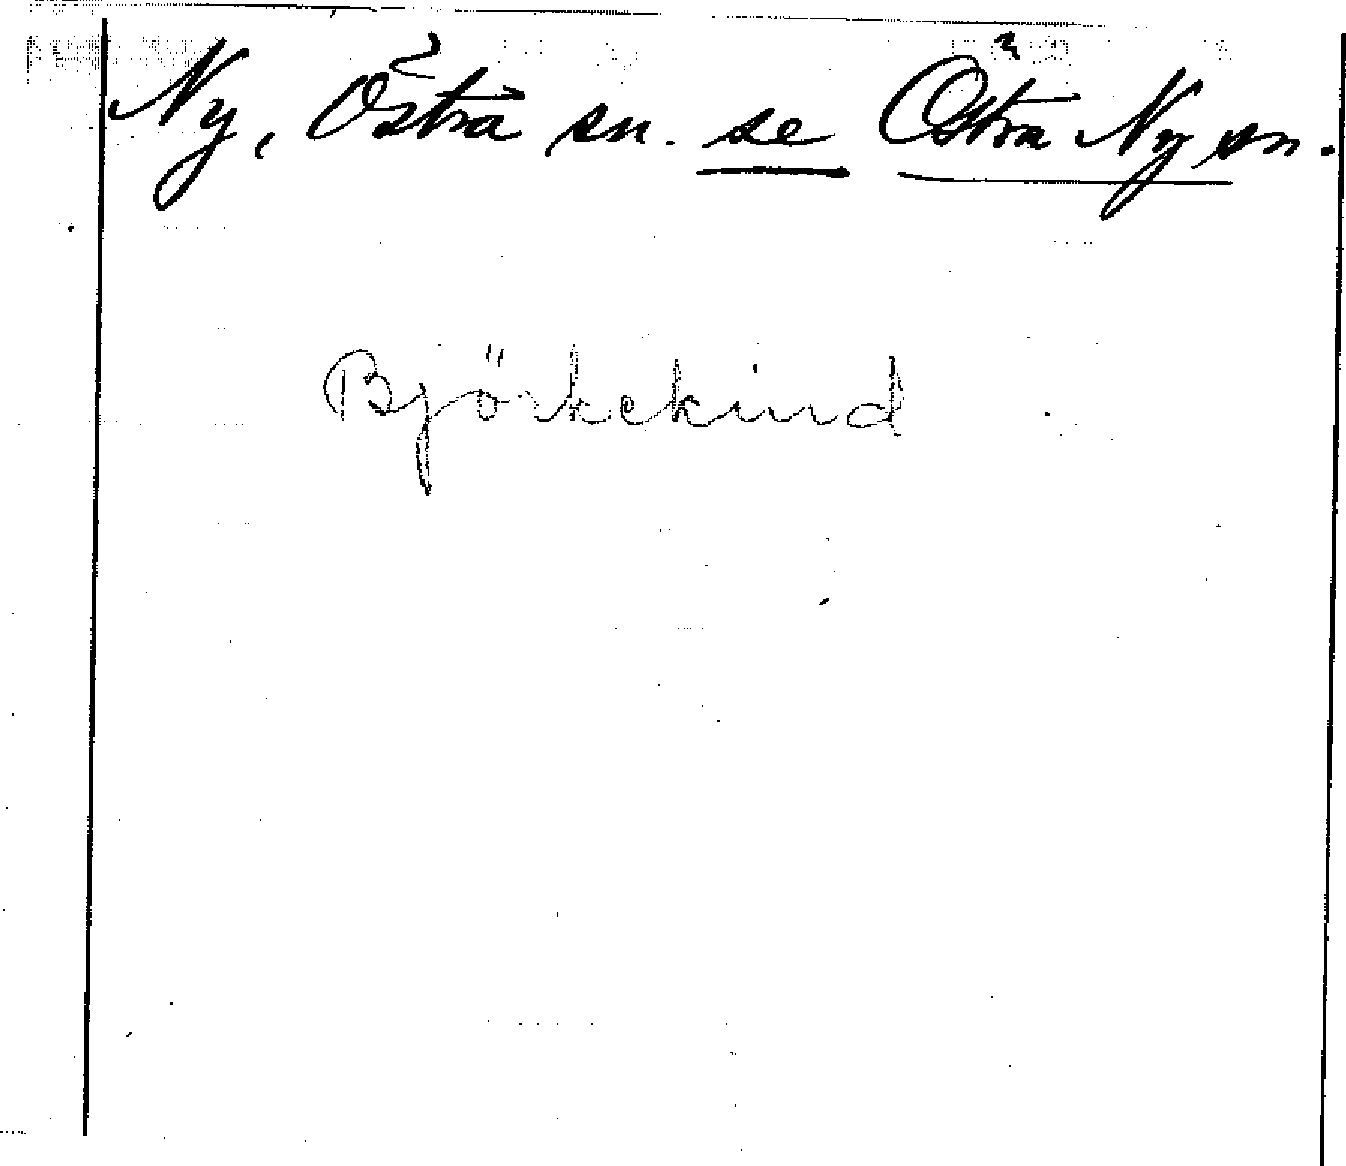 Ny, Östra sn. se Östra Ny sn.
Björkekind